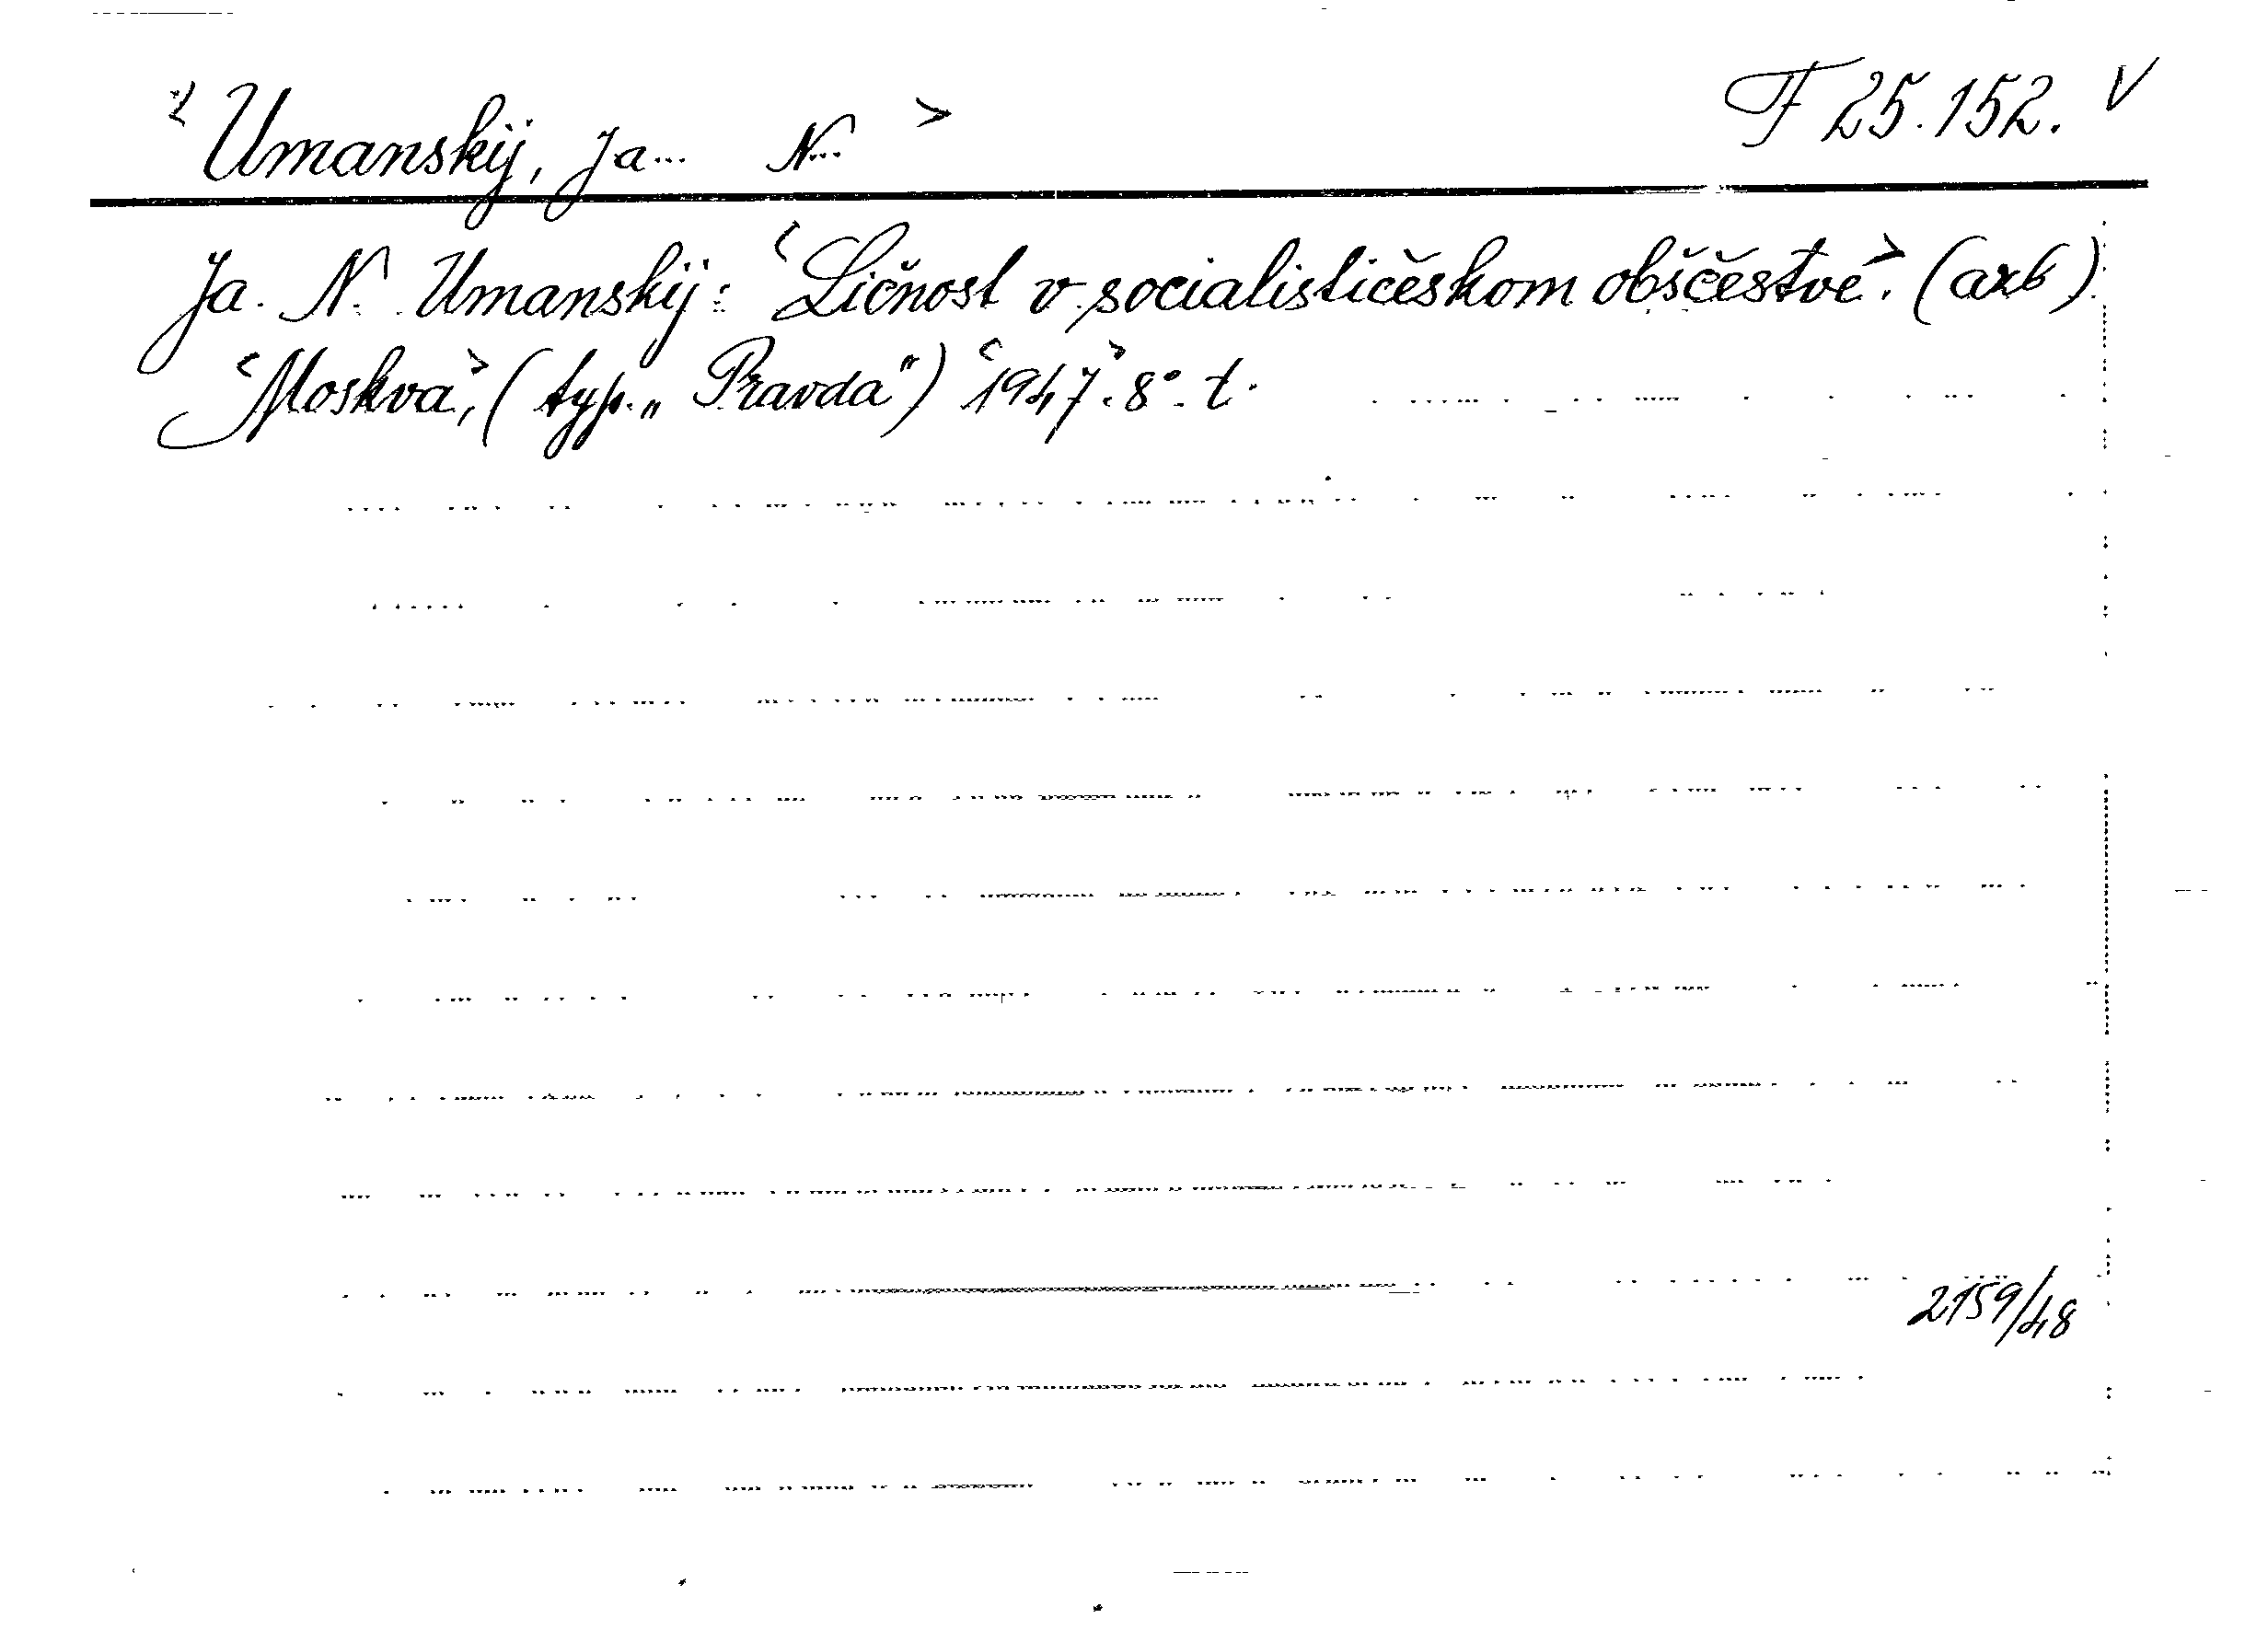 <Umanskij, Ja... N...> F 25.152. V
Ja. N. Umanskij: <Ličnost v socialističeskom obščestve>. (axb)
<Moskva>, (typ. „Pravda") <1947>. 8°. t.
2159/48